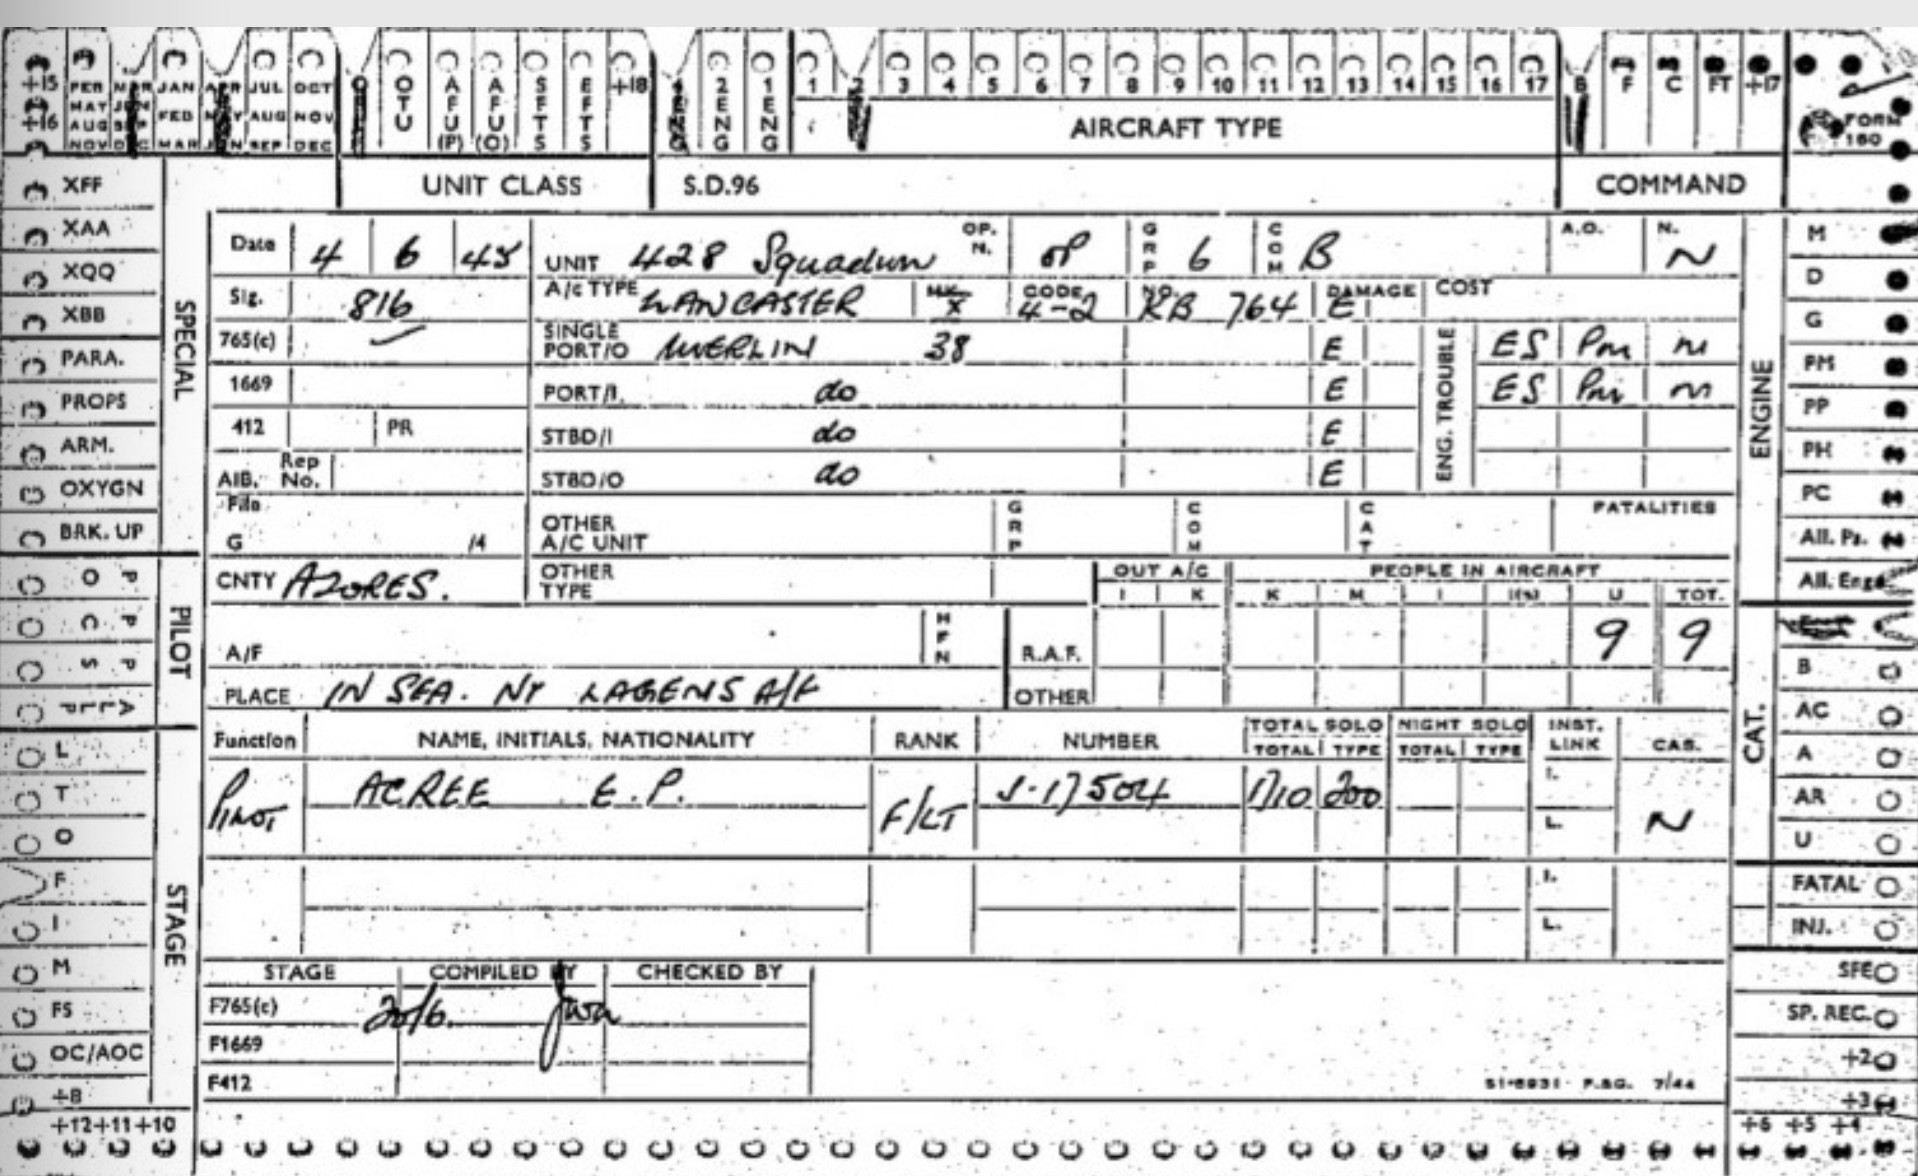 +15 FEB MAR JAN APR JUL OCT OTU AFU (P) AFU (O) SFTS EFTS +18 4ENG 2ENG 1ENG 1 2 3 4 5 6 7 8 9 10 11 12 13 14 15 16 17 B F C FT +17
+16 MAY JUN FEB MAY AUG NOV
AUG SEP
NOV DEC MAR JUN SEP DEC
AIRCRAFT TYPE
FORM 160
UNIT CLASS S.D.96 COMMAND
XFF
XAA
XQQ
XBB
PARA.
PROPS
ARM.
OXYGN
BRK. UP
SPECIAL
P O
P C
P S
ALL P
PILOT
L
T
O
F
I
M
FS
OC/AOC
+8
STAGE
+12+11+10
Date 4 6 45 UNIT 428 Squadron OP. N. OP GRP 6 COM B A.O. N. N
Sig. 816 A/c TYPE LANCASTER MK. X CODE 4-2 NO. KB 764 DAMAGE E COST
765(c) SINGLE PORT/O MERLIN 38 E ENG. TROUBLE ES PM M
1669 PORT/I. do E ES PM M
412 PR STBD/I do E
AIB. Rep No. STBD/O do E
File G 14 OTHER A/C UNIT GRP COM CAT FATALITIES
CNTY AZORES. OTHER TYPE OUT A/C PEOPLE IN AIRCRAFT
I K K M I I(S) U TOT.
A/F HFN R.A.F. 9 9
PLACE IN SEA. NR LAGENS A/F OTHER
Function NAME, INITIALS, NATIONALITY RANK NUMBER TOTAL SOLO NIGHT SOLO INST. LINK CAS.
TOTAL TYPE TOTAL TYPE
PILOT ACREE E.P. F/LT J.17504 1710 200 I. L. N
I.
L.
STAGE COMPILED BY CHECKED BY
F765(c) 20/6.
F1669
F412
51-6931 F.&G. 7/44
M
D
G
PM
PP
PH
PC
All. Ps.
All. Engs
ENGINE
B
AC
A
AR
U
CAT.
FATAL
INJ.
SFE
SP. REC.
+2
+3
+6 +5 +4